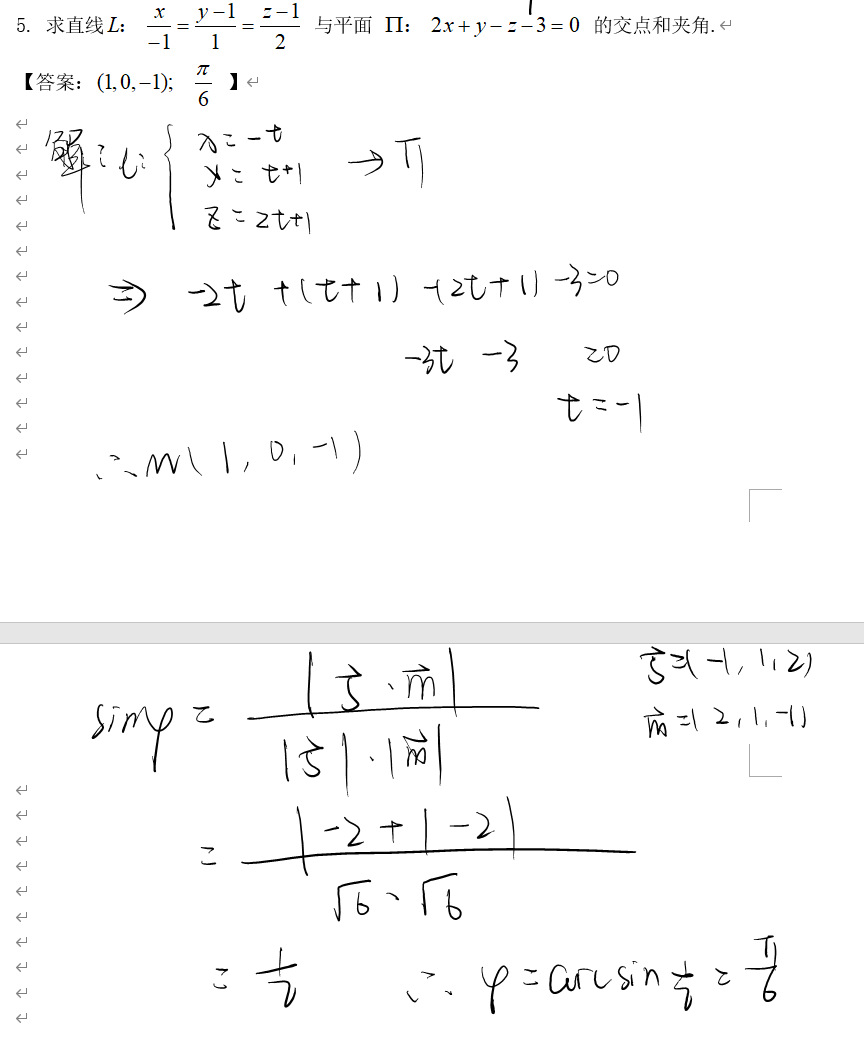 5. 求直线L: x/-1 = y-1/1 = z-1/2 与平面 Π: 2x+y-z-3=0 的交点和夹角.
【答案: (1,0,-1); π/6 】
解: L: { x=-t
y= t+1 → Π
z=2t+1
⇒ -2t +(t+1) -(2t+1) -3=0
-3t -3 =0
t=-1
∴ M(1,0,-1)
s⃗=(-1,1,2)
sinφ = |s⃗·n⃗| / |s⃗|·|n⃗|
n⃗=(2,1,-1)
= |-2+1-2| / √6·√6
= 1/2 ∴ φ=arcsin 1/2 = π/6